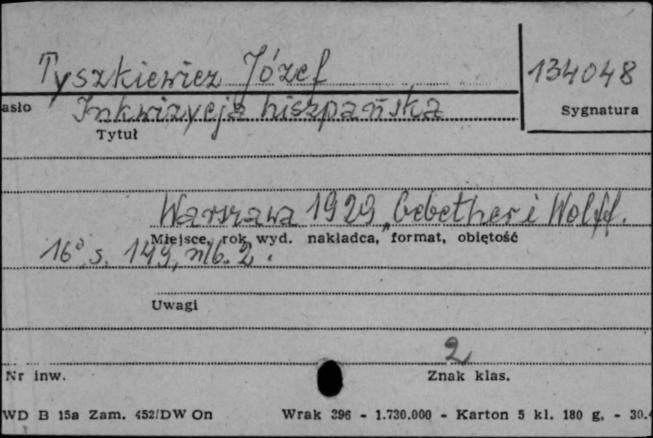 Tyszkiewicz Józef
134048
asło
Inkwizycja hiszpańska
Sygnatura
Tytuł
Warszawa 1929, Gebethner i Wolff.
Miejsce, rok wyd. nakładca, format, objętość
16°, s. 149, nlb. 2.
Uwagi
2
Nr inw.
Znak klas.
WD B 15a Zam. 452/DW On
Wrak 396 - 1.730.000 - Karton 5 kl. 180 g. - 30.4